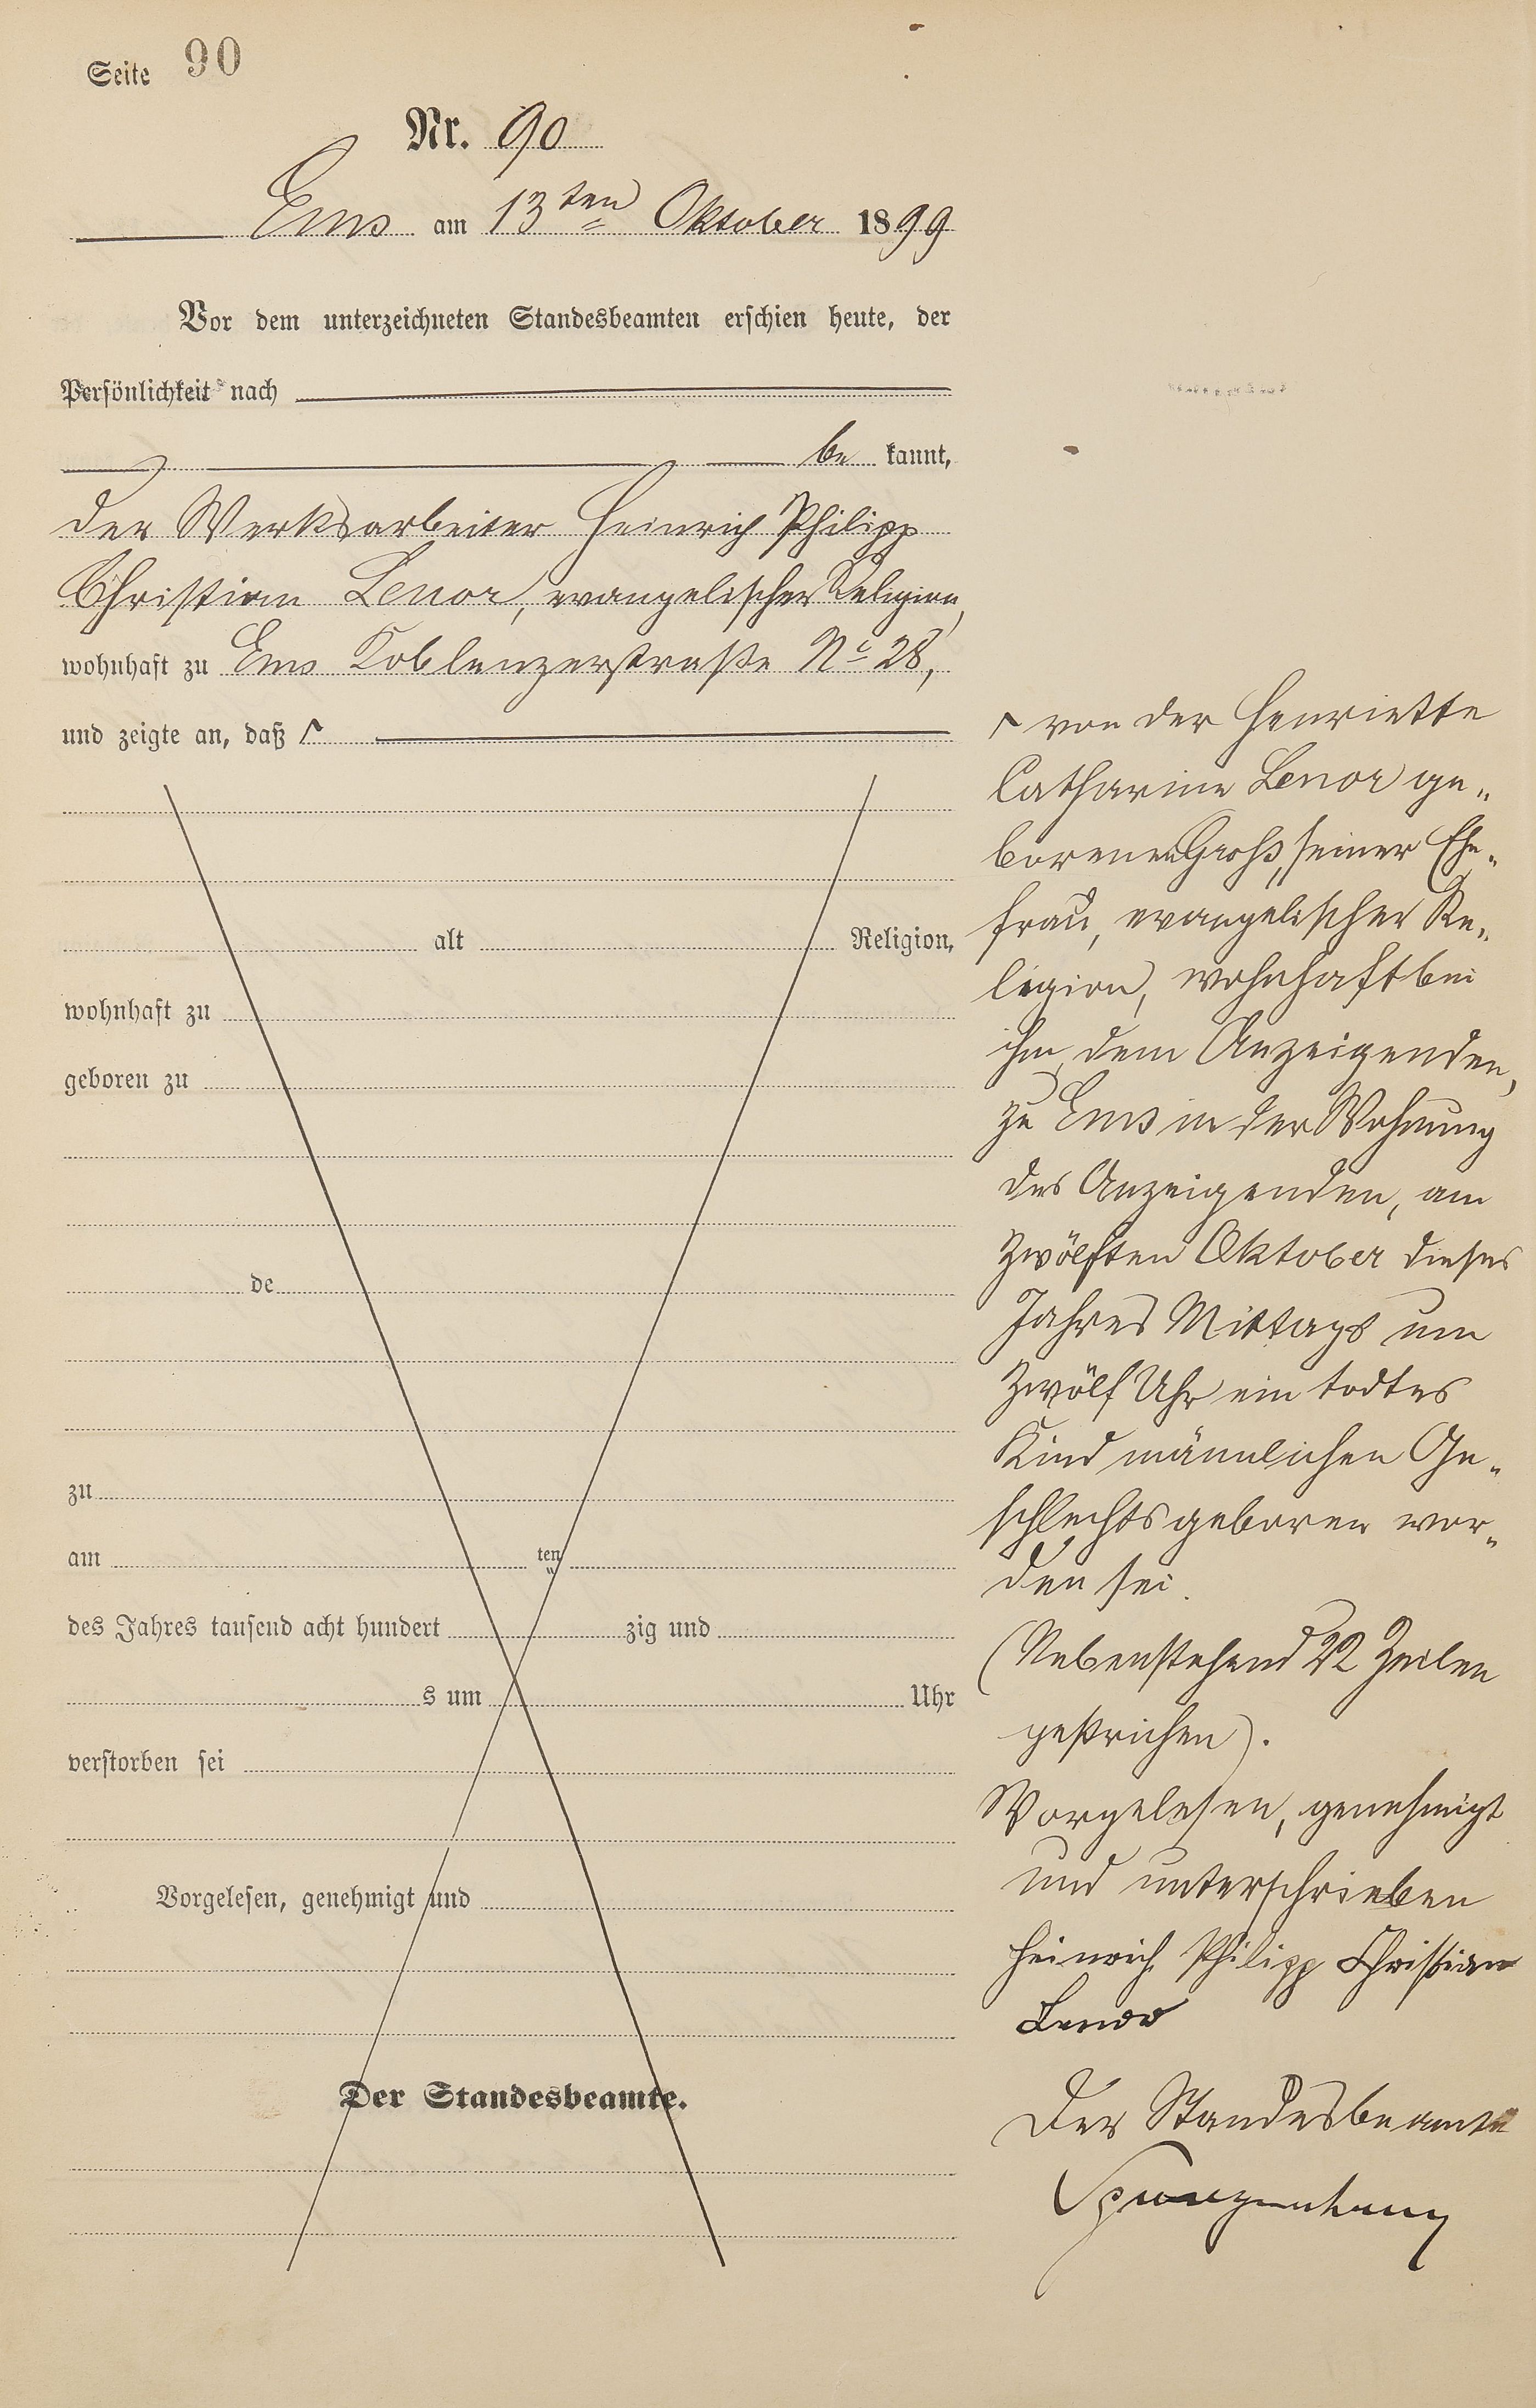 Seite 90
Nr. 90
Ems am 13ten Oktober 1899
Vor dem unterzeichneten Standesbeamten erschien heute, der
Persönlichkeit nach
be kannt,
der Werksarbeiter Heinrich Philipp
Christian Lenor, evangelischer Religion,
wohnhaft zu Ems Koblenzerstraße No 28,
und zeigte an, daß
alt Religion,
wohnhaft zu
geboren zu
de
zu
am ten
des Jahres tausend acht hundert zig und
s um Uhr
verstorben sei
Vorgelesen, genehmigt und
Der Standesbeamte.
von der Henriette
Catharine Lenor ge„
borenen Groß, seiner Ehe„
frau, evangelischer Re„
ligion, wohnhaft bei
ihm, dem Anzeigenden,
zu Ems in der Wohnung
des Anzeigenden, am
zwölften Oktober dieses
Jahres Mittags um
zwölf Uhr ein todtes
Kind männlichen Ge„
schlechts geboren wor„
den sei.
(Nebenstehend 22 Zeilen
gestrichen).
Vorgelesen, genehmigt
und unterschrieben
Heinrich Philipp Christian
Lenor
Der Standesbeamte